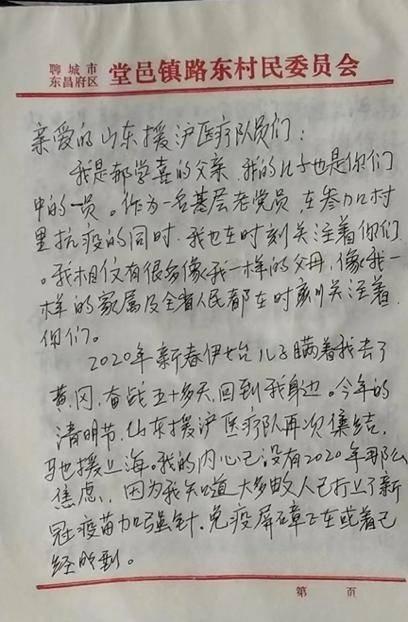 聊城市
东昌府区
堂邑镇路东村民委员会
亲爱的山东援沪医疗队员们:
我是郝学喜的父亲,我的儿子也是你们
中的一员。作为一名基层老党员,在参加村
里抗疫的同时,我也在时刻关注着你们
。我相仪有很多像我一样的父母,像我一
样的家属及全省人民都在时刻关注着
你们。
2020年新春伊始儿子瞒着我去了
黄冈,奋战五十多天,回到我身边。今年的
清明节,山东援沪医疗队再次集结,
驰援上海。我的内心已没有2020年那么
焦虑,因为我知道大多数人已打上了新
冠疫苗加强针,免疫屏障正在或者已
经形到。
第 页